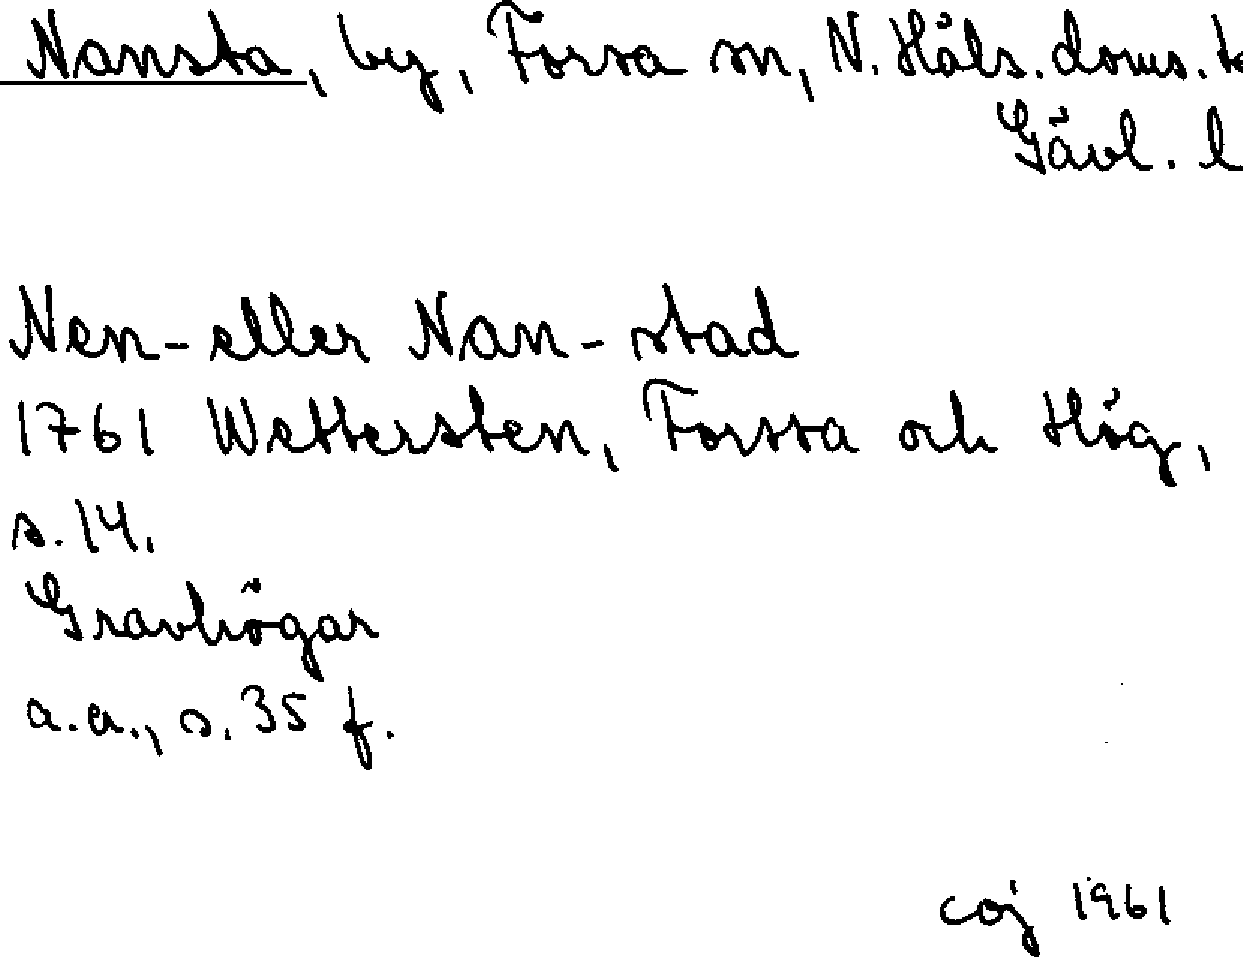 Nansta, by, Forsa sn, N. Häls. doms.
Gävl. l
Nen- eller Nan-stad
1761 Wettersten, Forssa och Hög,
s. 14.
Gravhögar
a.a., s. 35 f.
coj 1961